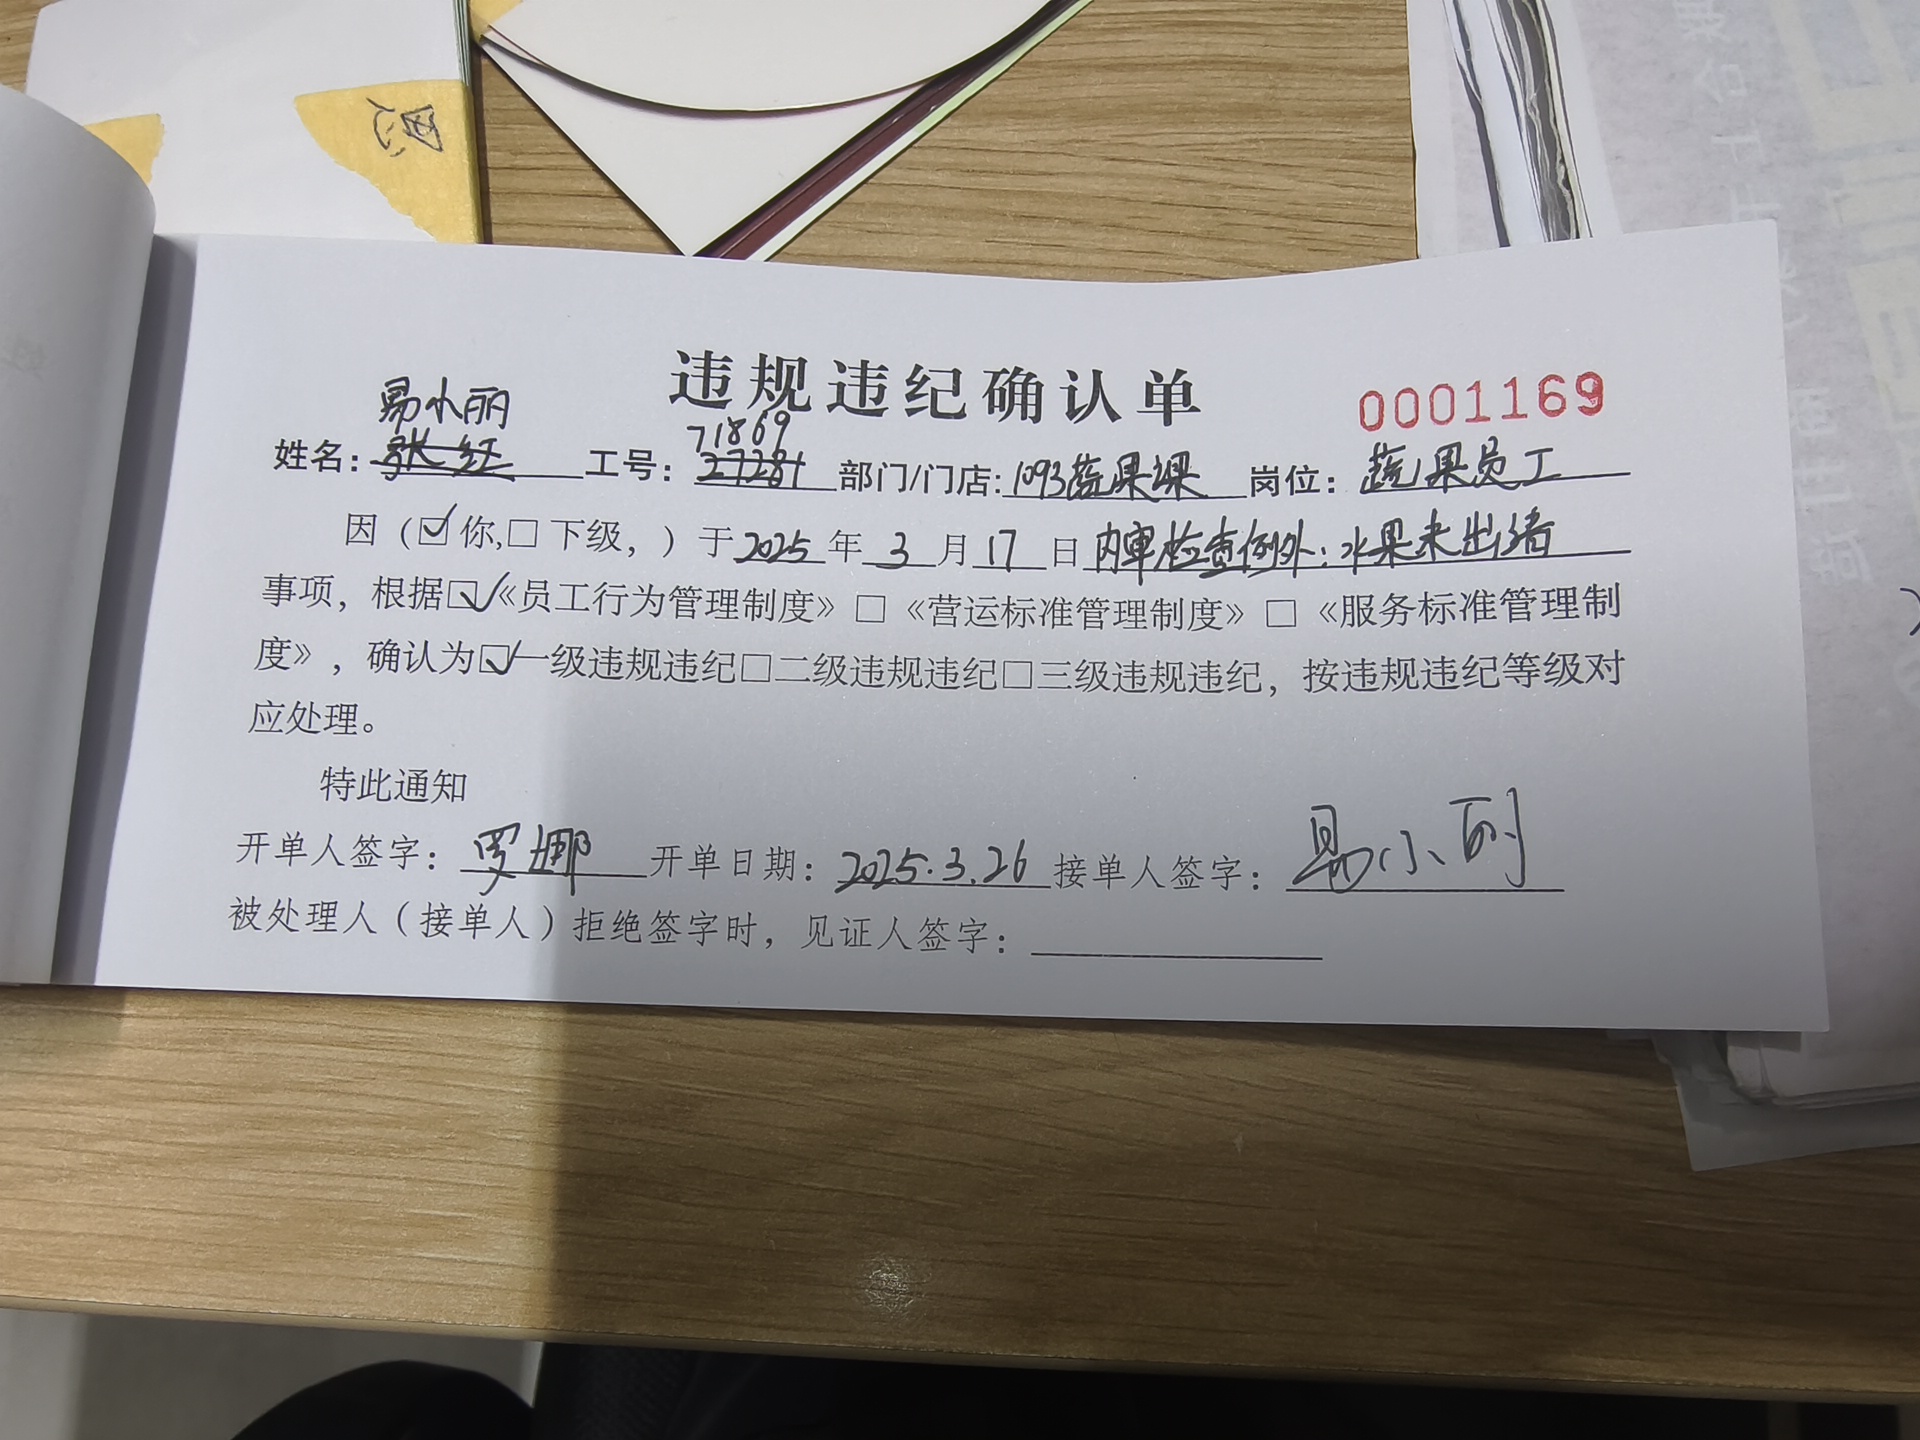 违规违纪确认单
0001169
易小丽
71869
姓名：张红 工号：27281 部门/门店：1093蔬果课 岗位：蔬果员工
因（☑你,□下级，）于2025年3月17日内审检查例外：水果未出清
事项，根据☑《员工行为管理制度》□《营运标准管理制度》□《服务标准管理制
度》，确认为☑一级违规违纪□二级违规违纪□三级违规违纪，按违规违纪等级对
应处理。
特此通知
开单人签字：罗娜 开单日期：2025.3.26 接单人签字：易小丽
被处理人（接单人）拒绝签字时，见证人签字：